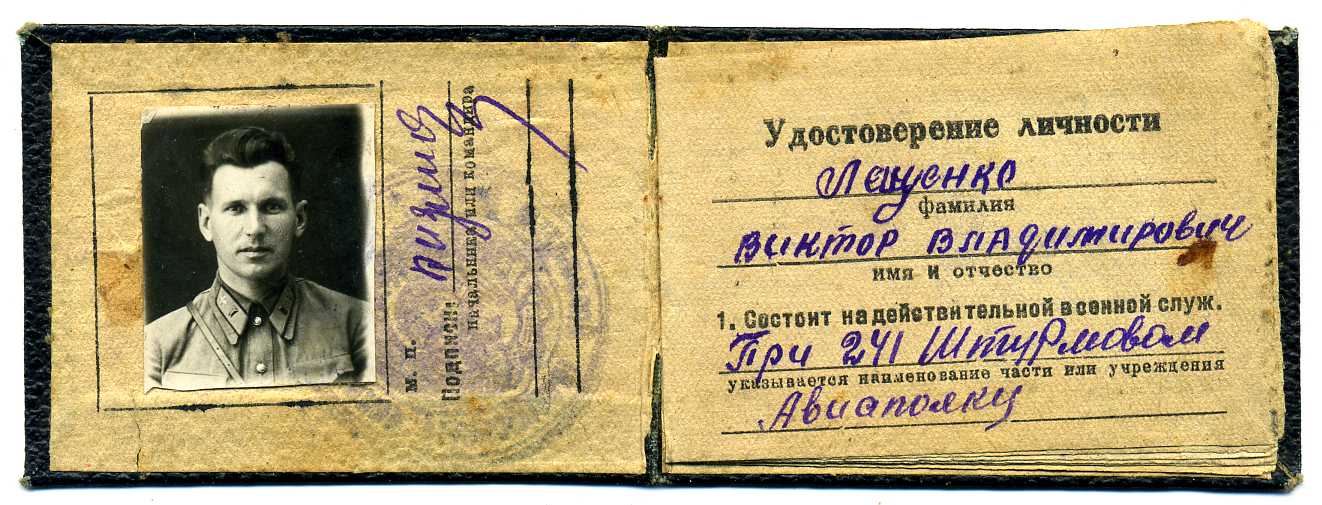 М. П.
Подпись:
начальника или командира
Удостоверение личности
Лещенко
фамилия
Виктор Владимирович
имя и отчество
1. Состоит на действительной военной служ.
При 241 Штурмовом
указывается наименование части или учреждения
Авиаполку